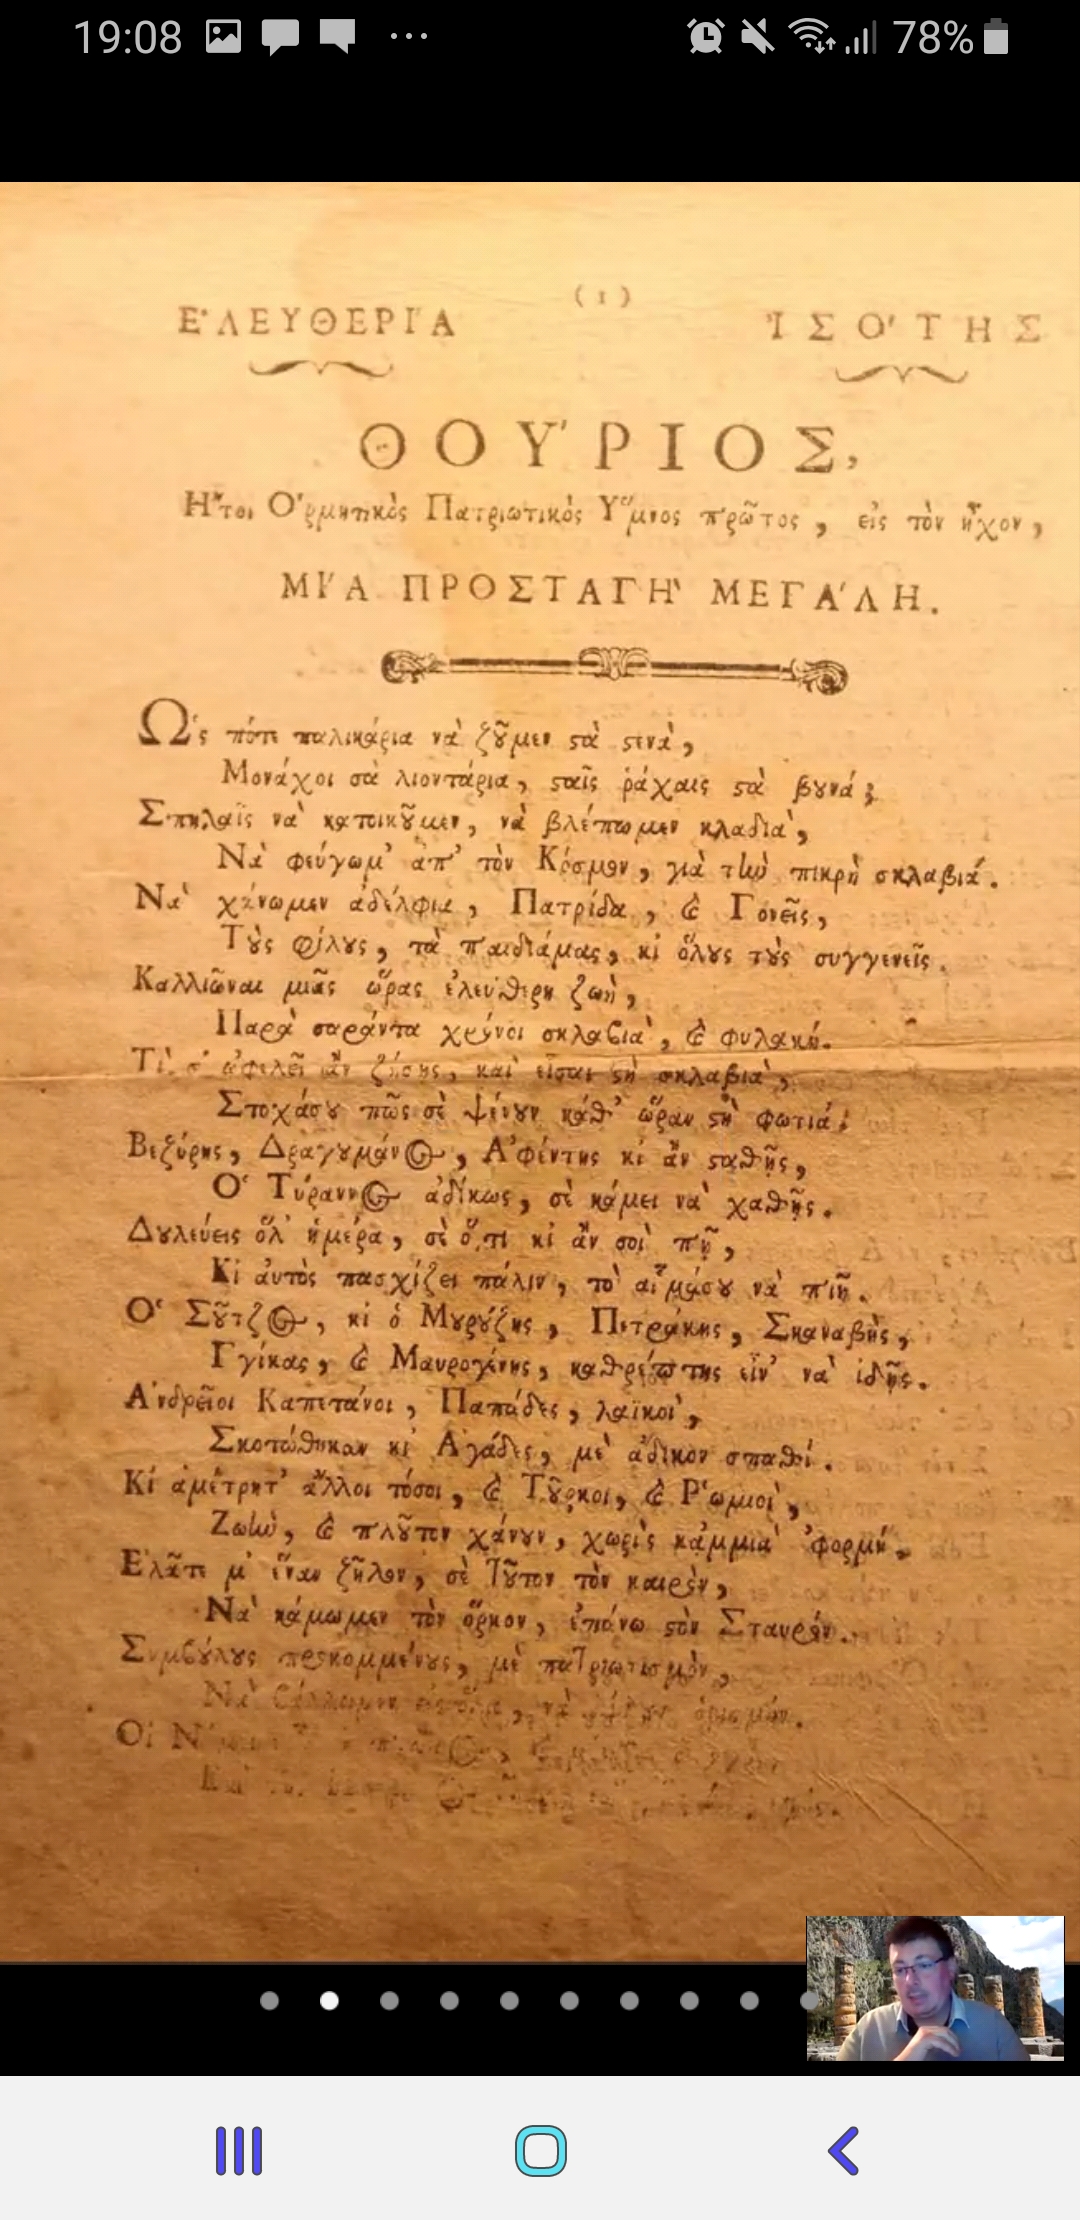 19:08
78%
(1)
ΕʼΛΕΥΘΕΡΙʼΑ ἸΣΟʼΤΗΣ
ΘΟΥʼΡΙΟΣ,
Ηʼ͂τοι Οʽρμητικὸς Πατριωτικὸς Υʽ́μνος πρῶτος, εἰς τὸν ἦχον,
ΜΙʼΑ ΠΡΟΣΤΑΓΗ` ΜΕΓΑʼΛΗ.
Ωʽς πότε παλικάρια νὰ ζοῦμεν ϛὰ ϛενὰ,
Μονάχοι σὰ λιοντάρια, ϛαῖς ῥάχαις ϛὰ βουνά;
Σπηλαῒς νὰ κατοικοῦμεν, νὰ βλέπωμεν κλαδιὰ,
Νὰ φεύγωμʼ ἀπʼ τὸν Κόσμον, γιὰ τὴν πικρὴ σκλαβιά.
Νὰ χάνωμεν ἀδέλφια, Πατρίδα, ϗ Γονεῖς,
Τοὺς φίλους, τὰ παιδιάμας, κι ὅλους τοὺς συγγενεῖς.
Καλλιῶναι μιᾶς ὥρας ἐλεύθερη ζωὴ,
Παρὰ σαράντα χρόνοι σκλαβιὰ, ϗ φυλακή.
Τὶ σʼ ὀφελεῖ ἂν ζήσης, καὶ εἶσαι ϛὴ σκλαβιὰ,
Στοχάσου πῶς σὲ ψένουν κάθʼ ὥραν ϛὴ φωτιά;
Βεζύρης, Δραγουμάνος, Αʼφέντης κι ἂν ϛαθῇς,
Οʽ Τύραννος ἀδίκως, σὲ κάμει νὰ χαθῇς.
Δουλεύεις ὅλʼ ἡμέρα, σὲ ὅ,τι κι ἂν σοὶ πῇ,
Κι αὐτὸς πασχίζει πάλιν, τὸ αἷμάσου νὰ πιῇ.
Οʽ Σοῦτζος, κι ὁ Μουρούζης, Πετράκης, Σκαναβὴς,
Γγίκας, ϗ Μαυρογένης, καθρέπτης εἶνʼ νὰ ἰδῇς.
Αʼνδρεῖοι Καπετάνοι, Παπάδες, λαϊκοὶ,
Σκοτώθηκαν κι Αʼγάδες, μὲ ἄδικον σπαθί.
Κι ἀμέτρητʼ ἄλλοι τόσοι, ϗ Τοῦρκοι, ϗ Ρʽωμιοὶ,
Ζωὴν, ϗ πλοῦτον χάνουν, χωρὶς κἀμμιὰ ʼφορμή.
Ελᾶτε μʼ ἕναν ζῆλον, σὲ τοῦτον τὸν καιρὸν,
Νὰ κάμωμεν τὸν ὅρκον, ἐπάνω ϛὸν Σταυρόν.
Συμβούλους προκομμένους, μὲ πατριωτισμὸν,
Νὰ ὁρισμόν.
Οἱ